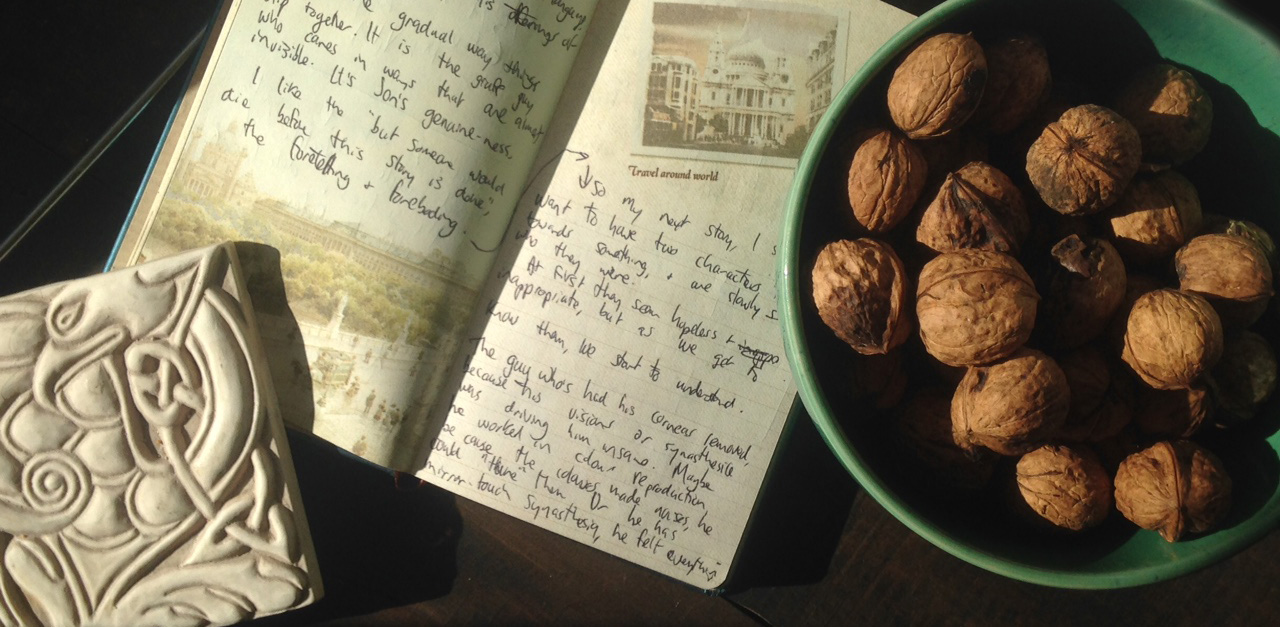 is offerings of
slip together. It is the gradual way things
who cares in ways that are almost
invisible. It's Jon's genuine-ness.
I like the "but someone would
die before this story is done",
the foretelling + foreboding.
Travel around world
So my next story, I
want to have two characters
towards something, + are slowly
who they were.
At first they seem hopeless +
inappropriate, but as we get to
know them, we start to understand.
The guy who's had his corneas removed,
because his visions or synasthesie
was driving him insane. Maybe
he worked in colour reproduction,
be cause the colours made noises, he
could tune them. Or he has
mirror-touch synasthesia, he felt everything